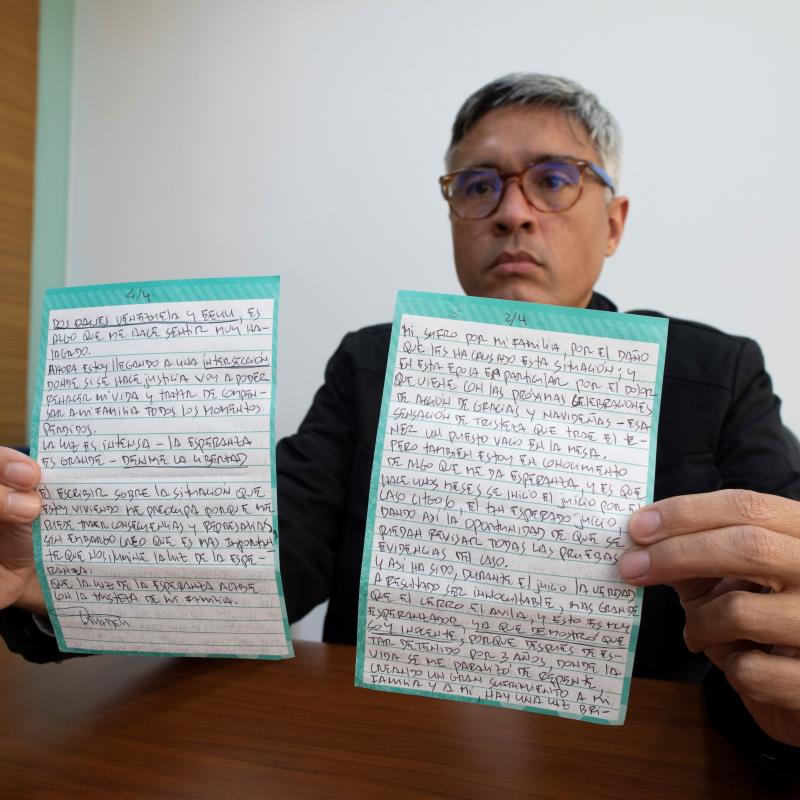 4/4
DOS PAISES VENEZUELA Y EEUU, ES
ALGO QUE ME HACE SENTIR MUY HA-
LAGADO.
AHORA ESTOY LLEGANDO A UNA INTERSECCIÓN
DONDE SI SE HACE JUSTICIA VOY A PODER
REHACER MI VIDA Y TRATAR DE COMPEN-
SAR A MI FAMILIA TODOS LOS MOMENTOS
PERDIDOS.
LA LUZ ES INTENSA - LA ESPERANZA
ES GRANDE - DENME LA LIBERTAD
EL ESCRIBIR SOBRE LA SITUACIÓN QUE
ESTOY VIVIENDO ME PREOCUPA PORQUE ME
PUEDE TRAER CONSECUENCIAS Y REPRESALIAS
SIN EMBARGO CREO QUE ES MAS IMPORTAN-
TE QUE NOS ILUMINE LA LUZ DE LA ESPE-
RANZA.
QUE LA LUZ DE LA ESPERANZA ACABE
CON LA TRISTEZA DE MI FAMILIA.
2/4
MI, SUFRO POR MI FAMILIA, POR EL DAÑO
QUE LES HA CAUSADO ESTA SITUACIÓN; Y
EN ESTA EPOCA EN PARTICULAR POR EL DOLOR
QUE VIENE CON LAS PRÓXIMAS CELEBRACIONES
DE ACCIÓN DE GRACIAS Y NAVIDEÑAS - ESA
SENSACIÓN DE TRISTEZA QUE TRAE EL TE-
NER UN PUESTO VACIO EN LA MESA.
PERO TAMBIEN ESTOY EN CONOCIMIENTO
DE ALGO QUE ME DA ESPERANZA Y ES QUE
HACE UNOS MESES SE INICIO EL JUICIO POR EL
CASO CITGO 6, EL TAN ESPERADO JUICIO,
DANDO ASÍ LA OPORTUNIDAD DE QUE SE
PUEDAN REVISAR TODAS LAS PRUEBAS Y
EVIDENCIAS DEL CASO.
Y ASI HA SIDO, DURANTE EL JUICIO LA VERDAD
A RESULTADO SER INOCULTABLE, MAS GRANDE
QUE EL CERRO EL AVILA, Y ESTO ES MUY
ESPERANZADOR, YA QUE DEMOSTRÓ QUE
SOY INOCENTE, PORQUE DESPUES DE ES-
TAR DETENIDO POR 3 AÑOS, DONDE LA
VIDA SE ME PARALIZÓ DE REPENTE,
CREANDO UN GRAN SUFRIMIENTO A MI
FAMILIA Y A MI, HAY UNA LUZ BRI-